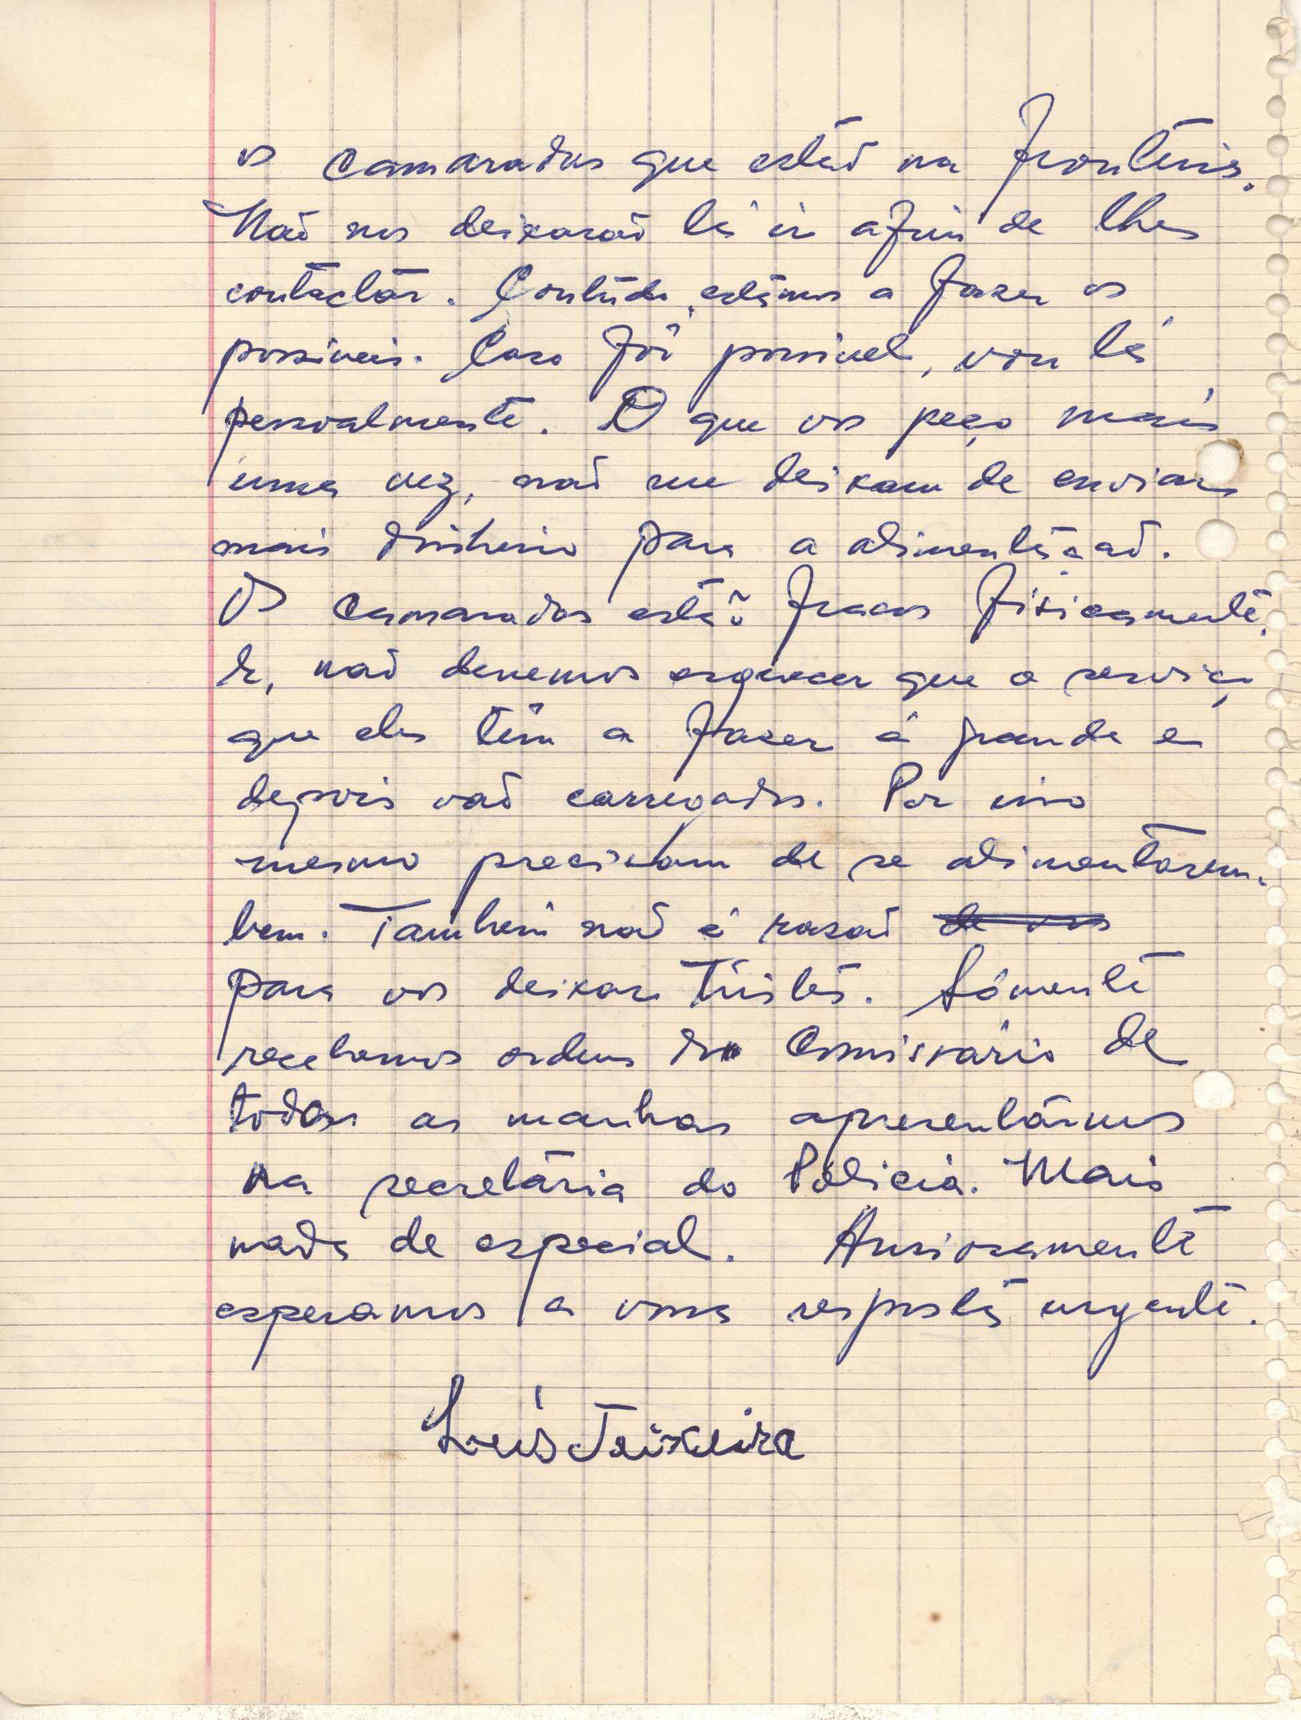 os camaradas que estão na fronteira.
Não nos deixarão lá ir afim de lhes
contactar. Contudo, estamos a fazer os
possiveis. Caso fôr possivel, vou lá
pessoalmente. O que vos peço mais
uma vez, não me deixam de enviar
mais dinheiro para a alimentação.
Os camaradas estão fracos fisicamente.
E, não devemos esquecer que o serviço
que eles têm a fazer é grande e
depois vão carregados. Por isso
mesmo precisam de se alimentarem
bem. Também não é razão de vos
para vos deixar tristes. Sómente
recebemos ordens do Comissário de
todas as manhas apresentármos
na secretária do Policia. Mais
nada de especial. Ansiosamente
esperamos a vossa resposta urgente.
Luís Teixeira